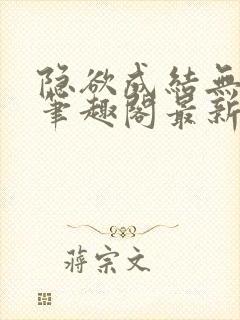 隐欲成结無
筆趣閣最新
蒋宗文